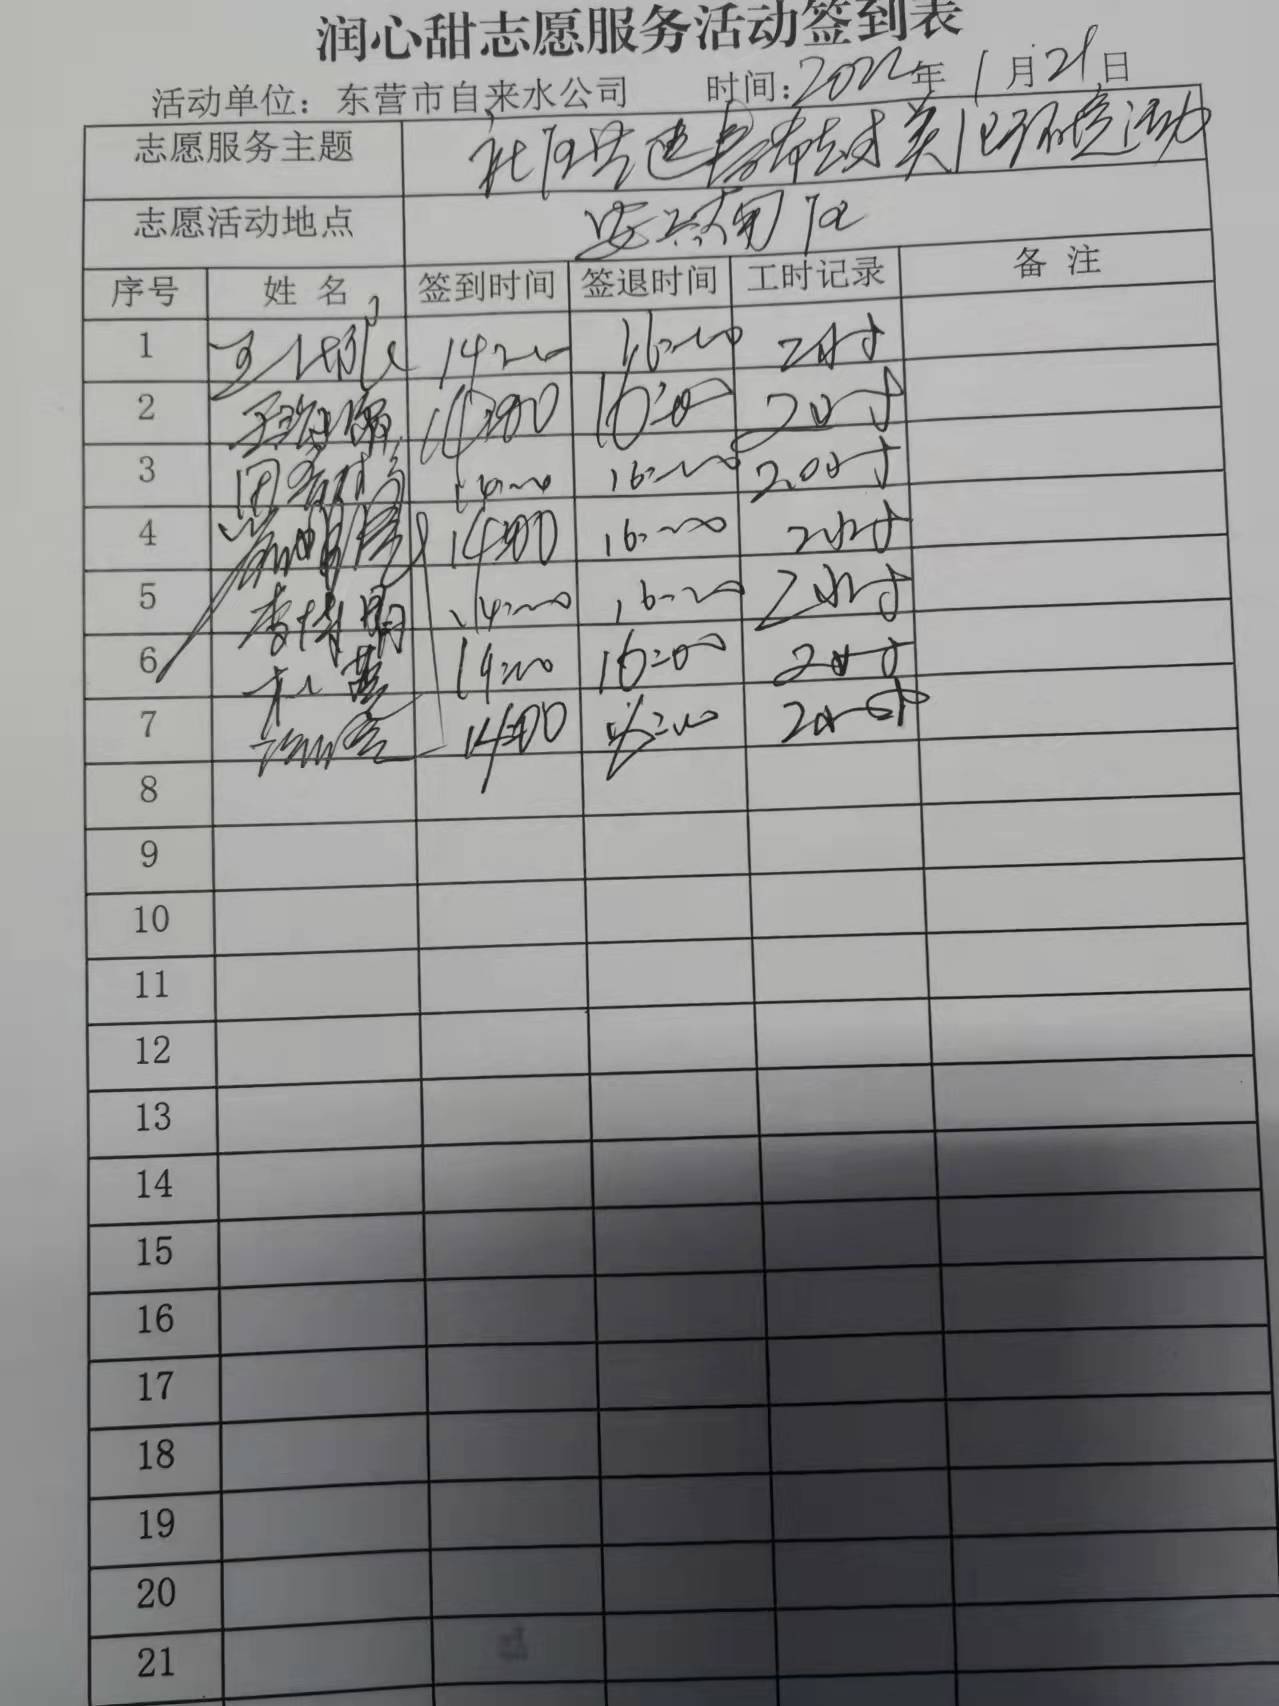 润心甜志愿服务活动签到表
活动单位：东营市自来水公司 时间：2022年1月21日
志愿服务主题 社区共建 美化环境活动
志愿活动地点 安兴南区
序号 姓名 签到时间 签退时间 工时记录 备注
1 14:00 16:00 2小时
2 14:00 16:00 2小时
3 14:00 16:00 2小时
4 14:00 16:00 2小时
5 李博明 14:00 16:00 2小时
6 14:00 16:00 2小时
7 14:00 16:00 2小时
8
9
10
11
12
13
14
15
16
17
18
19
20
21